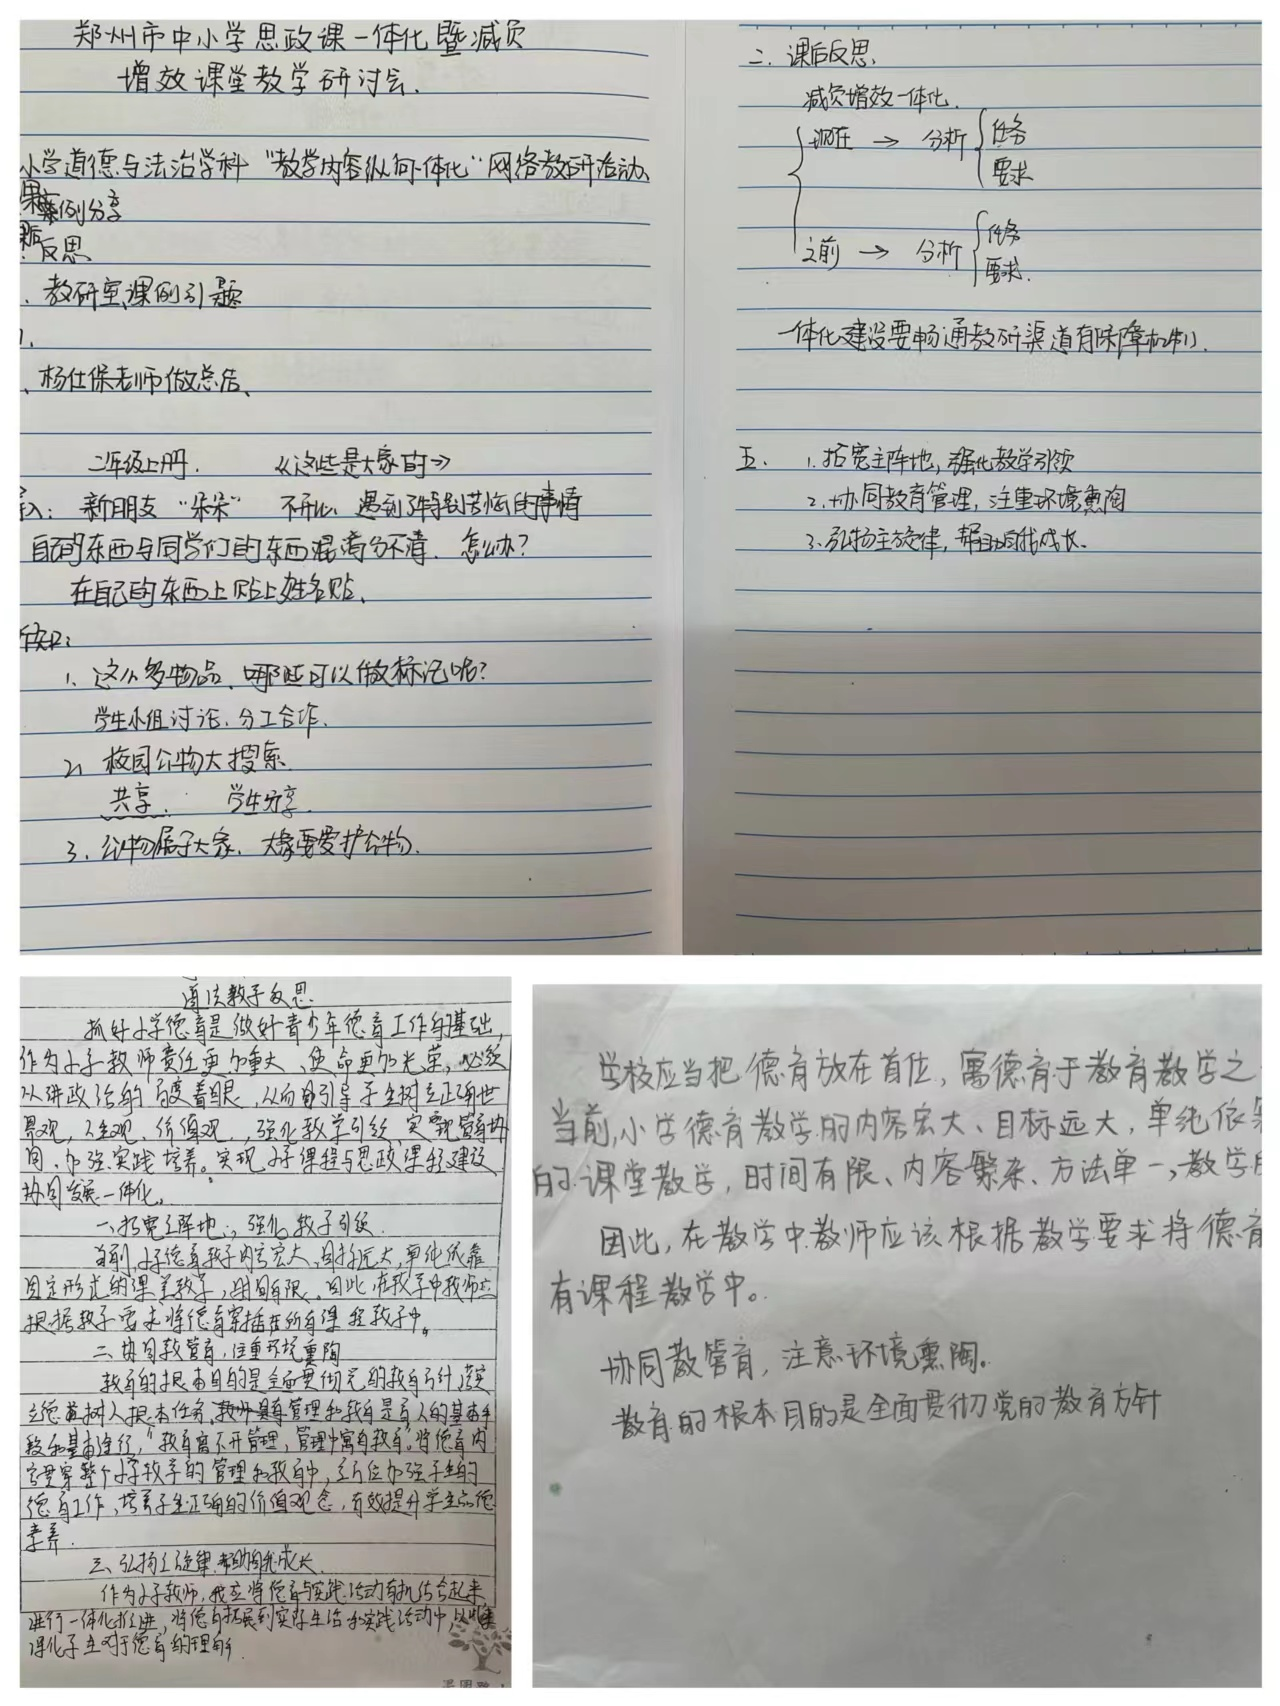 郑州市中小学思政课一体化暨减负
增效课堂教学研讨会.
小学道德与法治学科“教学内容纵向一体化”网络教研活动、
案例分享
课后反思
、教研室课例引题
、杨仕保老师做总结、
二年级上册. 《这些是大家的》
导入: 新朋友“朵朵” 不开心 遇到了特别苦恼的事情
自己的东西与同学们的东西混淆分不清. 怎么办?
在自己的东西上贴上姓名贴、
1、这么多物品、哪些可以做标记呢?
学生小组讨论.分工合作.
2、校园公物大搜索.
共享. 学生分享.
3、公物属于大家. 大家要爱护公物.
二. 课后反思.
减负增效一体化.
现在 → 分析 任务
要求
之前 → 分析 任务
要求.
一体化建设要畅通教研渠道有保障机制.
五. 1.拓宽主阵地,强化教学引领
2.协同教育管理,注重环境熏陶
3.弘扬主旋律,帮助自我成长.
道法教学反思
抓好小学德育是做好青少年德育工作的基础,
作为小学教师责任更加重大、使命更加光荣,必须
从讲政治的高度着眼,从而引导学生树立正确世
界观、人生观、价值观,强化教学引领,实现管育协
同、加强实践培养。实现小学课程与思政课程建设
协同发展一体化。
一、拓宽主阵地,强化教学引领.
当前,小学德育教学内容宏大、目标远大,单纯依靠
固定形式的课堂教学,时间有限。因此,在教学中教师应
根据教学要求将德育穿插在所有课程教学中。
二、协同教管育,注重环境熏陶
教育的根本目的是全面贯彻党的教育方针,落实
立德树人根本任务,管理和教育是育人的基本手
段和基本途径,“教育离不开管理,管理中寓有教育”。将德育内
容贯穿整个小学教学的管理和教育中,全方位加强学生的
德育工作,培养学生正确的价值观念,有效提升学生品德
素养.
三、弘扬主旋律,帮助自我成长.
作为小学教师,我应将德育与实践活动有机结合起来
进行一体化推进,将德育拓展到实际生活和实践活动中,以此来
深化学生对于德育的理解.
学校应当把德育放在首位,寓德育于教育教学之
当前,小学德育教学的内容宏大、目标远大,单纯依靠
的课堂教学,时间有限、内容繁杂、方法单一,教学
因此,在教学中教师应该根据教学要求将德育
有课程教学中。
协同教管育,注意环境熏陶.
教育的根本目的是全面贯彻党的教育方针